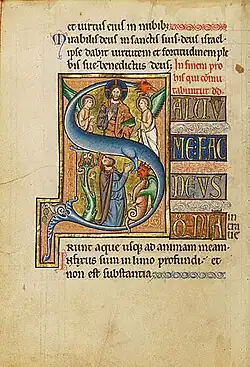 et virtus eius in nubib;
Mirabilis deus in sanctis suis deus isrl̄
ipse dabit virtutem et fortitudinem ple
bis sue benedictus deus; In finem pro
his qui cōmu
tabuntur dd.
SALVV
ME FAC
DEVS
QVONIĀ in
tra
ue
runt aque usq; ad animam meam
Infixus sum in limo profundi et
non est substantia